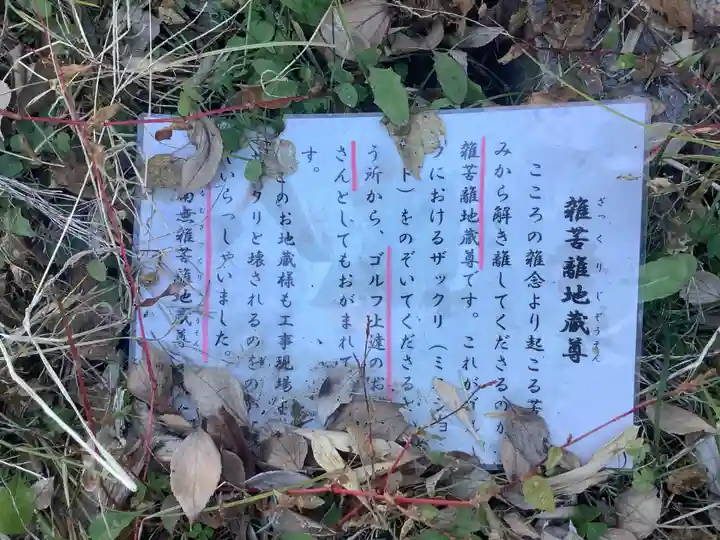 ざっくりじぞうそん
雑苦離地蔵尊
こころの雑念より起こる苦
みから解き離してくださるのが
雑苦離地蔵尊です。これが
におけるザックリ（ミ ショ
ト）をのぞいてくださる
う所から、ゴルフ上達のお
さんとしてもおがまれて
す。
のお地蔵様も工事現場
タリと壊されるのをの
いらっしゃいました。
むざっくり
南無雑苦離地蔵尊